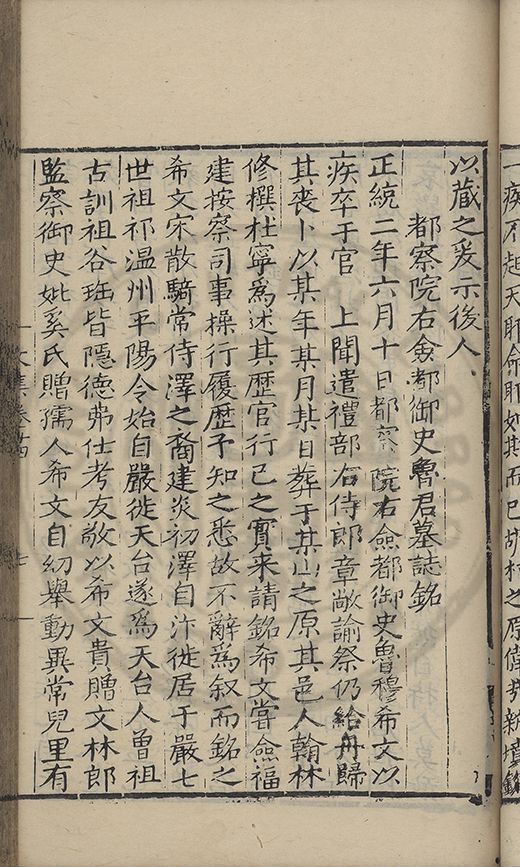 一疾不起天耶命耶如其而已
以藏之爰示後人
都察院右僉都御史魯君墓誌銘
正統二年六月十日都察院右僉都御史魯穆希文以
疾卒于官　上聞遣禮部右侍郎章敞諭祭仍給舟歸
其喪卜以某年某月某日葬于某山之原其邑人翰林
修撰杜寧爲述其歷官行己之實来請銘希文嘗僉福
建按察司事操行履歷予知之悉故不辭爲叙而銘之
希文宋散騎常侍澤之裔建炎初澤自汴徙居于嚴七
世祖祁温州平陽令始自嚴徙天台遂爲天台人曽祖
古訓祖谷珤皆隠德弗仕考友敬以希文貴贈文林郎
監察御史妣奚氏贈孺人希文自㓜舉動異常兒里有